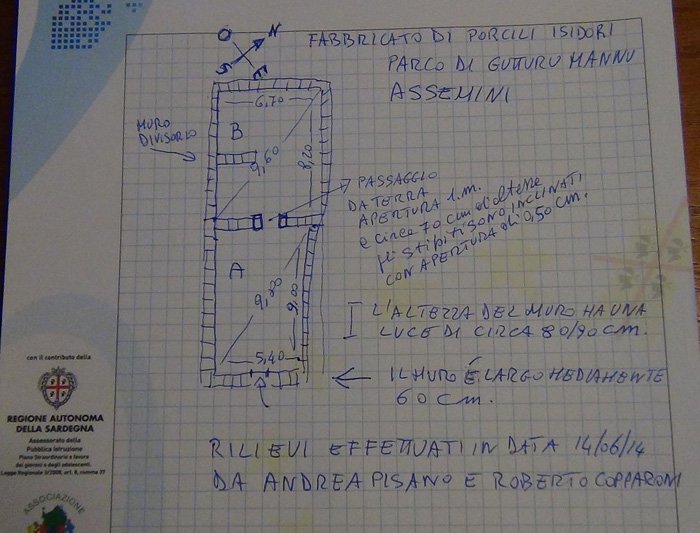 O N
S E
FABBRICATO DI PORCILI ISIDORI
PARCO DI GUTTURU MANNU
ASSEMINI
MURO
DIVISORIO
6,70
B
9,60
8,20
PASSAGGIO
DA TERRA
APERTURA 1.m.
e circa 70 cm d'altezze
gli stipiti sono INCLINATI
CON APERTURA di 0,50 cm.
A
9,00
5,40
L'ALTEZZA DEL MURO HA UNA
LUCE DI CIRCA 80/90 cm.
IL MURO É LARGO MEDIAMENTE
60 cm.
RILIEVI EFFETTUATI IN DATA 14/06/14
DA ANDREA PISANO E ROBERTO COPPARONI
con il contributo della
REGIONE AUTONOMA
DELLA SARDEGNA
Assessorato della
Pubblica Istruzione
Piano Straordinario a favore
dei giovani e degli adolescenti.
Legge Regionale 3/2008, art. 8, comma 37
ASSOCIAZIONE